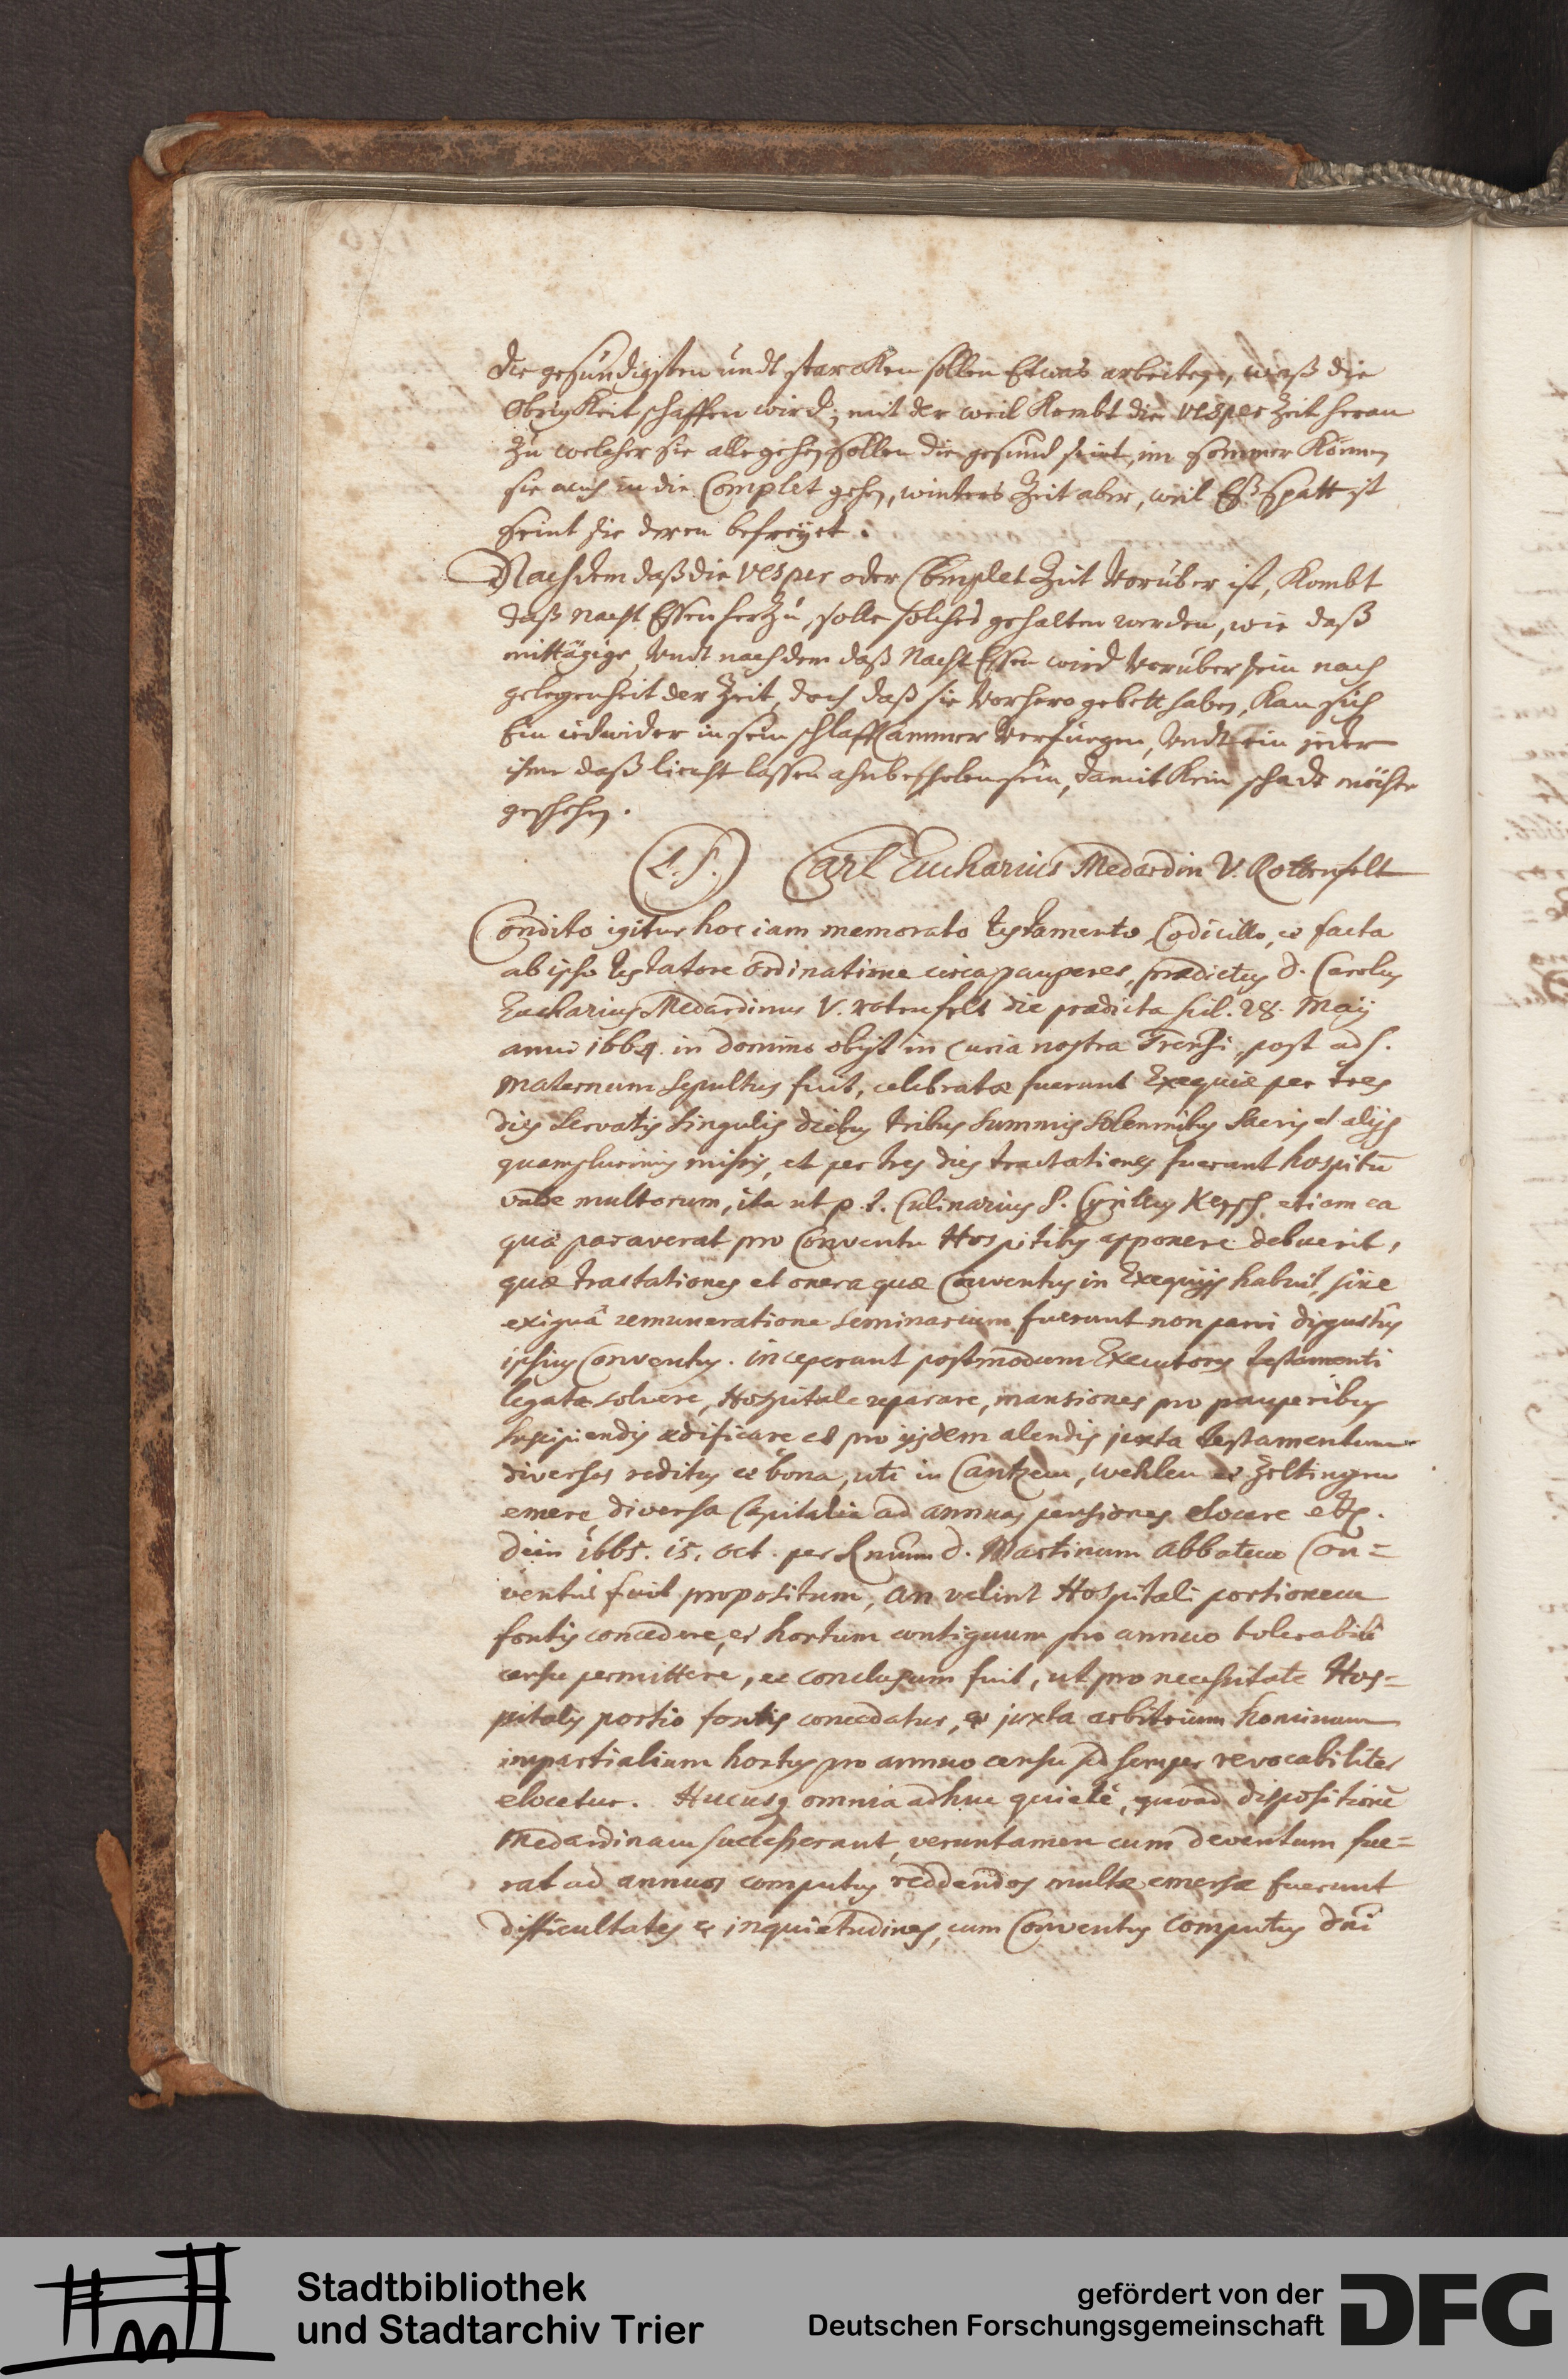 die gesündigsten undt starcken sollen Etwas arbeiten, waß die
Obrigkeit schaffen wird, mit der weil Kombt die Vesper Zeit heran
Zu welcher sie alle gehen sollen die gesund seint, im sommer Können
sie auch in die Complet gehen, winters Zeit aber, weil Eß spatt ist
seint sie deren befreÿet.
Nachdem daß die Vesper oder Complet Zeit Vorüber ist, Kombt
daß nacht Essen herZu, solle solches gehalten werden, wie daß
mittägige, Undt nach dem daß Nacht Essen wird Vorüber sein nach
gelegenheit der Zeit, doch daß sie Vorhero gebett haben, Kan sich
Ein iedwider in sein schlaffKammer Verfuegen, Undt ein jeder
ihme daß liecht lassen ahnbefholen sein, damit Kein schade möchte
geschehen.
(L.S.) Carl Eucharius Medardin V. Rottenfelt
Condito igitur hoc iam memorato testamento, Codicillo, et facta
ab ipso testatore ordinatione circa pauperes, praedictus d. Carolus
Eucharius Medardinus V. rotenfelt die praedicta scil. 28. Maij
anno 1664. in domino obijt in Curia nostra Trensi, post ad S.
Maternum sepultus fuit, celebratae fuerunt Exequiae per tres
dies servatis singulis diebus tribus summis solemnibus sacris et alijs
quamplurimis missis, et per tres dies tractationes fuerunt hospitū
valde multorum, ita ut p. t. Culinarius P. Cyrillus Kersch etiam ea
quae paraverat pro Conventu Hospitibus apponere debuerit,
quae tractationes et onera quae Conventus in Exequijs habuit, sine
exiguâ remuneratione seminarium fuerunt non parvi disgustûs
ipsius Conventus. inceperunt postmodum Executores testamenti
legata solvere, Hospitale reparare, mansiones pro pauperibus
suscipiendis aedificare et pro ijsdem alendis juxta testamentum
diversos reditus et bona, uti in Cantzem, wehlen et Zeltingen
emere, diversa Capitalia ad annuas pensiones elocare etc.
dein 1665. 15. oct. per Rmum d. Martinum Abbatem Con=
ventui fuit propositum, an velint Hospitali portionem
fontis concedere, et hortum contiguum pro annuo tolerabili
censu permittere, et conclusum fuit, ut pro necessitate Hos=
pitalis portio fontis concedatur, et juxta arbitrium hominum
impartialium hortus pro annuo censu sed semper revocabiliter
elocetur. Hucusq omnia adhuc quietè, quoad dispositionē
Medardinam successerant, veruntamen cum deventum fue=
rat ad annuos computus reddendos multae emersae fuerunt
difficultates et inquietudines, cum Conventus computus dni
Stadtbibliothek
und Stadtarchiv Trier
gefördert von der
Deutschen Forschungsgemeinschaft
DFG